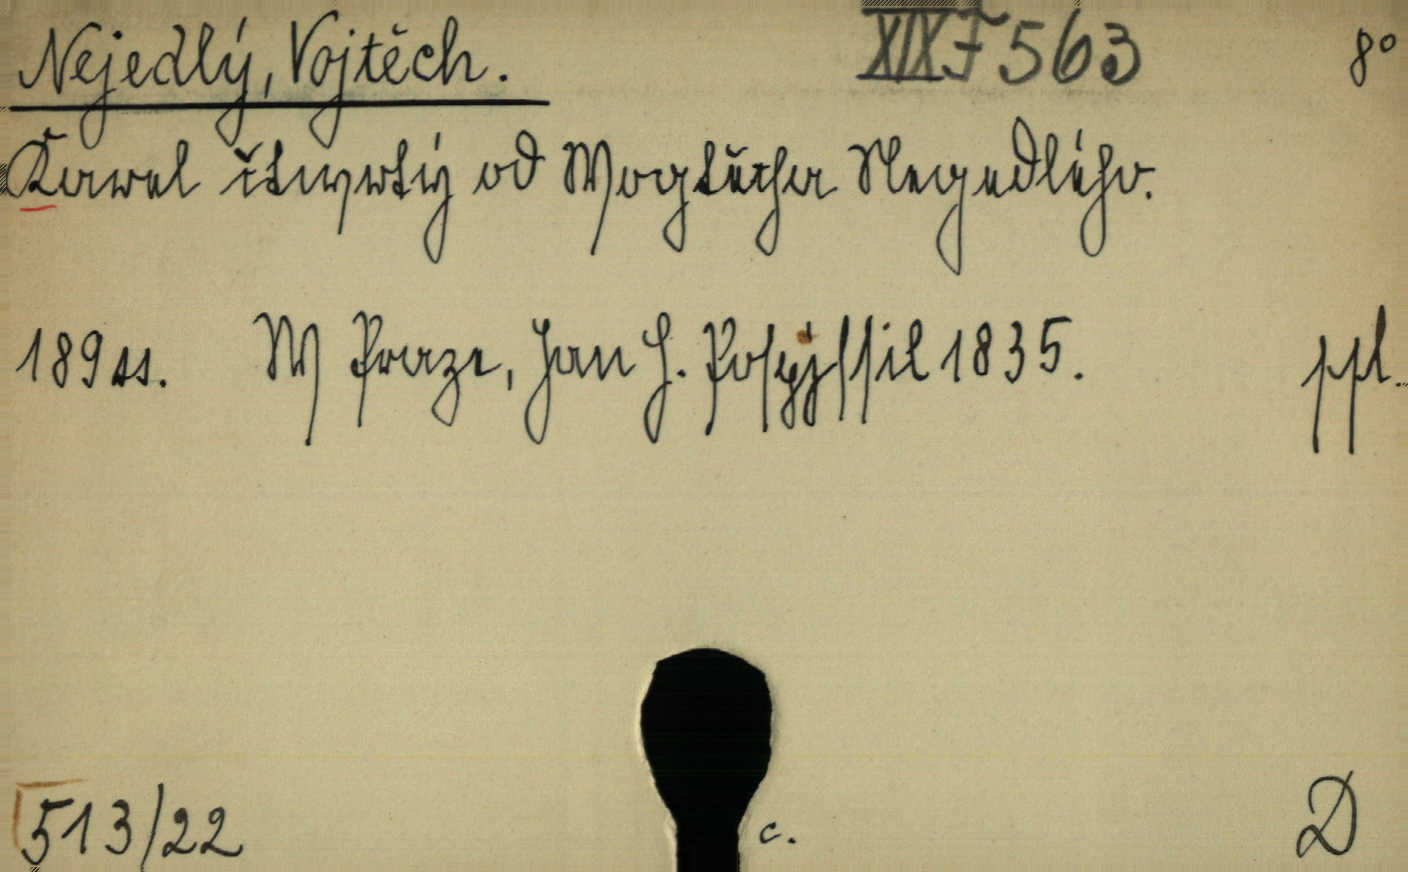 Nejedlý, Vojtěch. XIX F 563 8°
Karel čtwrtý od Wogtěcha Negedlého.
189 ss. W Praze, Jan H. Pospjssil 1835. ppl.
513/22 c. D